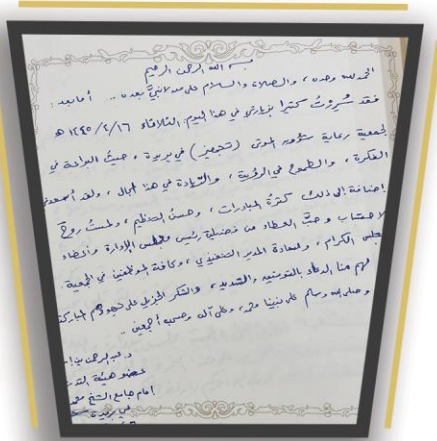 بسم الله الرحمن الرحيم
الحمد لله وحده ، والصلاة والسلام على من لا نبيَّ بعده .. أما بعد :
فقد سُررتُ كثيرا بزيارتي في هذا اليوم الثلاثاء ١٤٤٥/٤/١٦ هـ
لجمعية رعاية شؤون الموتى (تجهيز) في بريدة ، حيثُ البراعة في
الفكرة ، والطموح في الرؤية ، والرِّيادة في هذا المجال ، ولقد أسعدني
إضافة إلى ذلك كثرةُ المبادرات ، وحسنُ التنظيم ، ولمستُ روحَ
الاحتساب وحبَّ العطاء من فضيلة رئيس مجلس الإدارة وأعضاء
المجلس الكرام ، وسعادة المدير التنفيذي ، وكافة الموظفين في الجمعية
لهم منا الدعاء بالتوفيق والتسديد ، والشكر الجزيل على جهودهم المباركة
وصلى الله وسلم على نبينا محمد ، وعلى آله وصحبه أجمعين ..
د. عبدالرحمن بن
عضو هيئة التد
إمام جامع الشيخ محمد
في بريدة